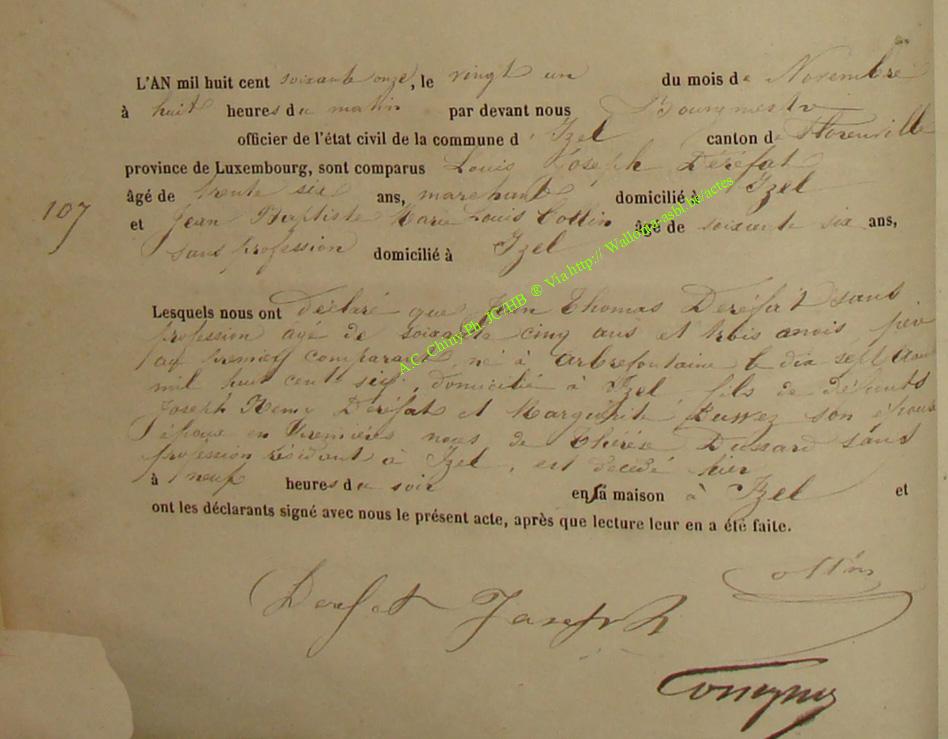 L'AN mil huit cent soixante onze, le vingt un du mois de Novembre
à huit heures du matin par devant nous Bourgmestre
officier de l'état civil de la commune d'Izel canton de Florenville
province de Luxembourg, sont comparus Louis Joseph Deréfat
âgé de trente six ans, marchand domicilié à Izel
107
et Jean Baptiste Marie Louis Collin âgé de soixante six ans,
sans profession domicilié à Izel
Lesquels nous ont déclaré que Jean Thomas Deréfat sans
profession agé de soixante cinq ans et trois mois
comparant, né à arbrefontaine le dix sept
mil huit cent six, domicilié à Izel fils de défunts
Joseph Remy Deréfat et Marguerite son épouse
époux en premières noces de Thérèse Dussard sans
profession résidant à Izel, est décédé hier
à neuf heures du soir en sa maison à Izel et
ont les déclarants signé avec nous le présent acte, après que lecture leur en a été faite.
Collin
Derefat Joseph
A.C. Chiny Ph. JC/HB ® Via http:// Wallonia-asbl be/actes